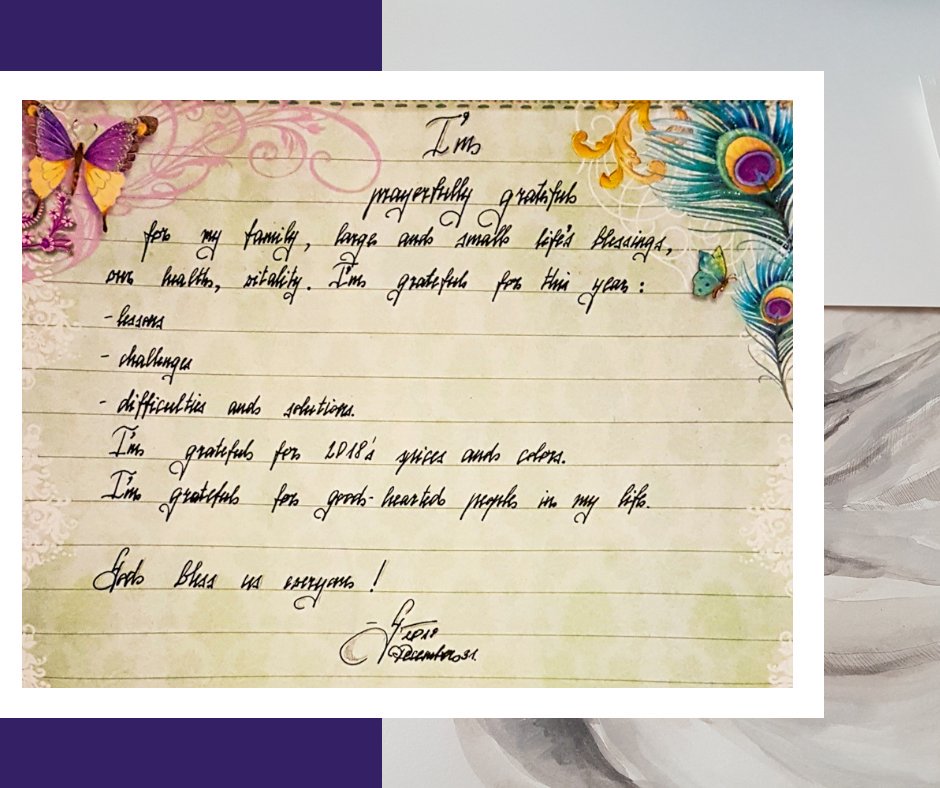 I'm
prayerfully grateful
for my family, large and small life's blessings,
our health, vitality. I'm grateful for this year:
- lessons
- challenges
- difficulties and solutions.
I'm grateful for 2018's and colors.
I'm grateful for good-hearted people in my life.
God bless us everyone!
2018
December 31.